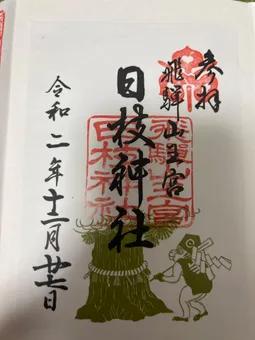 参拝
飛騨山王宮
日枝神社
令和二年十二月
飛騨山王宮
日枝神社